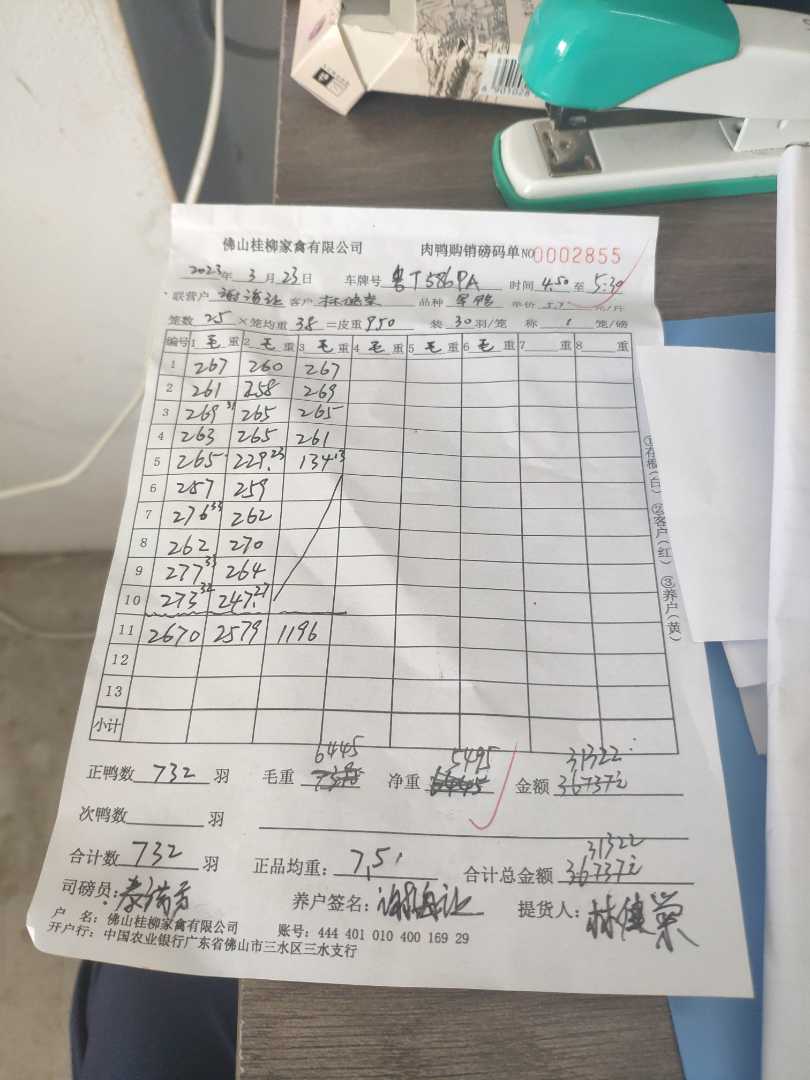 8 901028
佛山桂柳家禽有限公司 肉鸭购销磅码单 NO 0002855
2023年 3 月 23 日 车牌号 粤T586PA 时间 4.50 至 5:30
联营户 客户 林健荣 品种 单价 元/斤
笼数 25 ×笼均重 38 =皮重 950 装 30 羽/笼 称 1 笼/磅
编号 1 毛 重 2 毛 重 3 毛 重 4 毛 重 5 毛 重 6 毛 重 7 重 8 重
1 267 260 267
2 261 258 269
3 269 31 265 265
4 263 265 261
5 265 229. 23 134 13
6 257 259
7 276 33 262
8 262 270
9 277 33 264
10 273 32 247. 27
11 2670 2579 1196
12
13
小计
①存根(白) ②客户(红) ③养户(黄)
6445 5495 31322
正鸭数 732 羽 毛重 净重 金额 36737
次鸭数 羽
31322
合计数 732 羽 正品均重: 7.51 合计总金额 36737
司磅员: 养户签名: 提货人: 林健荣
户 名: 佛山桂柳家禽有限公司 账号: 444 401 010 400 169 29
开户行: 中国农业银行广东省佛山市三水区三水支行